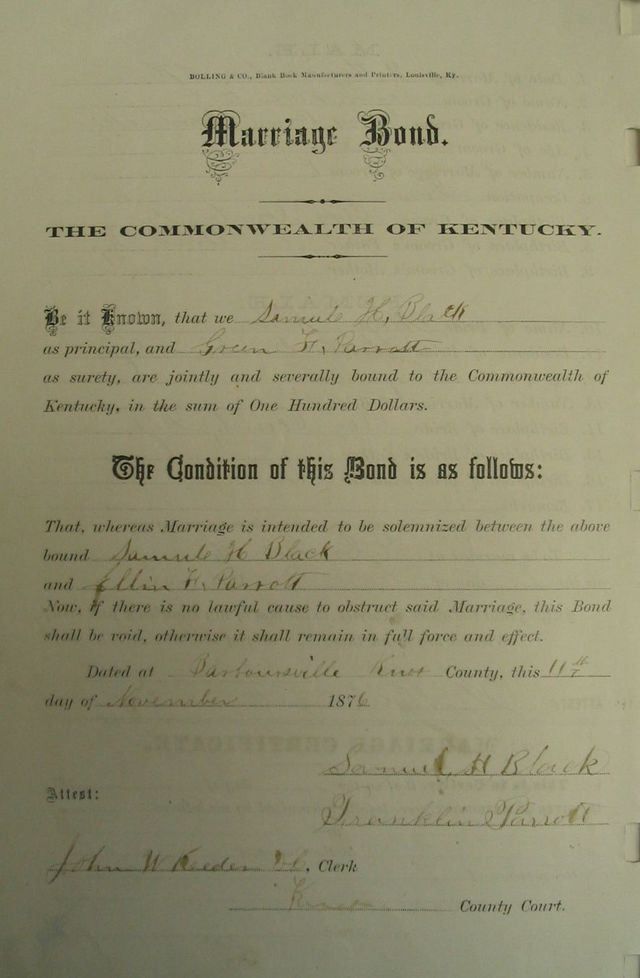 BOLLING & CO., Blank Book Manufacturers and Printers, Louisville, Ky.
Marriage Bond.
THE COMMONWEALTH OF KENTUCKY.
Be it Known, that we Samule H, Black
as principal, and Green H, Parrott
as surety, are jointly and severally bound to the Commonwealth of
Kentucky, in the sum of One Hundred Dollars.
The Condition of this Bond is as follows:
That, whereas Marriage is intended to be solemnized between the above
bound Samule H Black
and Ellin H, Parrott
Now, if there is no lawful cause to obstruct said Marriage, this Bond
shall be void, otherwise it shall remain in full force and effect.
Dated at Barboursville Knox County, this 11th
day of November 1876
Samuel H Black
Attest:
Franklin Parrott
John W, Clerk
Knox County Court.